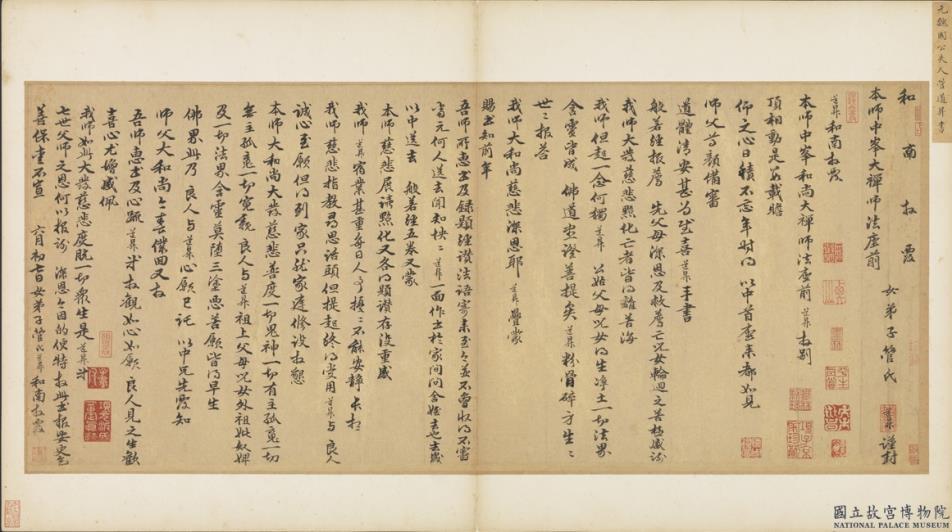 元魏國公夫人管道昇書
和南拜覆
本師中峯大禪師法座前 女弟子管氏道昇謹封
道昇和南拜覆
本師中峯和尚大禪師法座前道昇拜別
頂相動是數載瞻
仰之心日積不忘年時得以中首座來都如見
師父尊顏備審
道體清安甚為慰喜道昇手書
般若經報薦先父母深恩及救薦亡兒女輪迴之苦極感謝
我師大發慈悲點化亡者皆得離苦海
我師但起一念何獨道昇公姑父母兒女得生淨土一切法界
含靈皆成佛道安證菩提矣道昇粉骨碎身生生
世世報答
我師大和尚慈悲深恩耶道昇疊蒙
賜書知前年
吾師所惠書及錄題經讚法語寄來至今並不曾收得不審
當元何人送去聞知怏怏道昇一面作書於家間問舍姪去也去歲
以中送去般若經五卷又蒙
本師慈悲展讀點化又各得題讚存沒重感
我師道昇宿業甚重每日人事擾擾不能安靜長想
我師慈悲指教尋思話頭但提起終得受用道昇與良人
誠心至願但得到家只就家庭修設拜懇
本師大和尚大發慈悲普度一切鬼神一切有主孤魂一切
無主孤魂一切冤親良人與道昇祖上父母兒女外祖妣奴婢
及一切法界含靈莫墮三塗惡苦願皆得早生
佛界此乃良人與道昇心願已託以中兄先覆知
師父大和尚今喜僕回又拜
吾師惠書及心疏道昇頂拜觀如心如願良人見之生歡
喜心尤增感佩
我師如此大發慈悲度脫一切眾生是道昇
七世父師之恩何以報謝深恩今因的便特拜此書報安更乞
善保重不宣
六月初七日女弟子管氏道昇和南拜覆
國立故宮博物院
NATIONAL PALACE MUSEUM